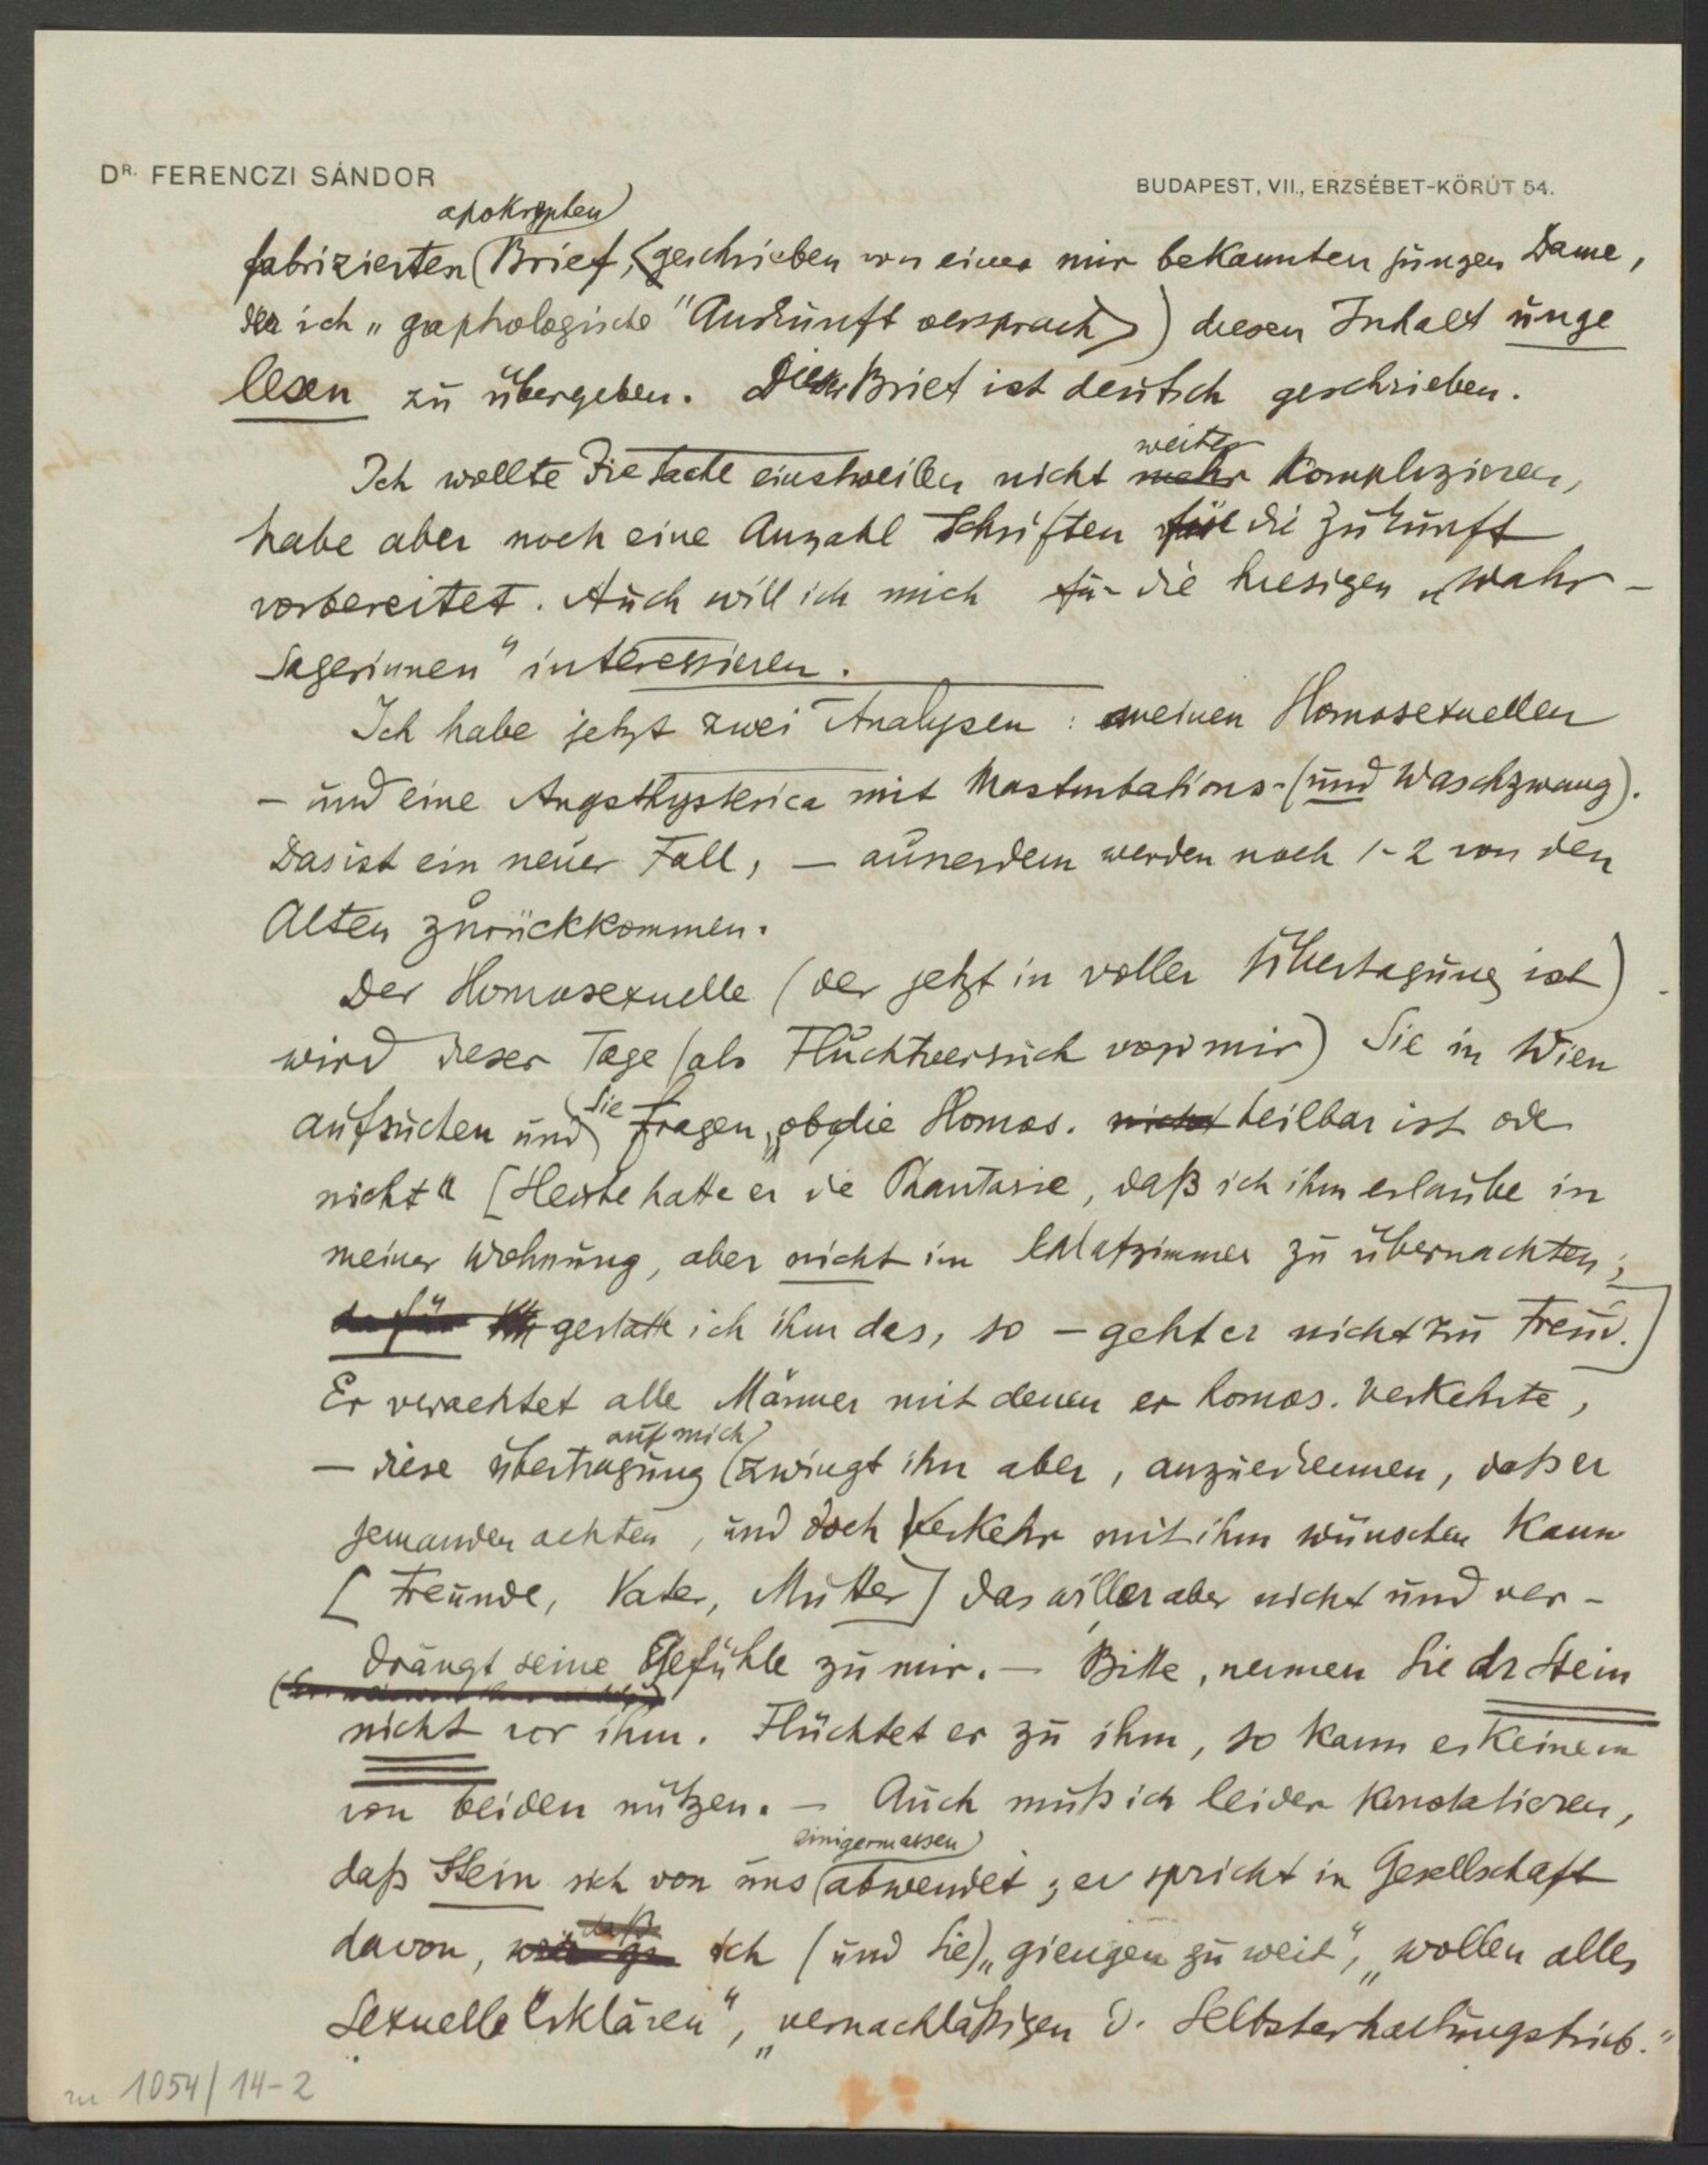 DR. FERENCZI SÁNDOR
BUDAPEST, VII., ERZSÉBET-KÖRÚT 54.
apokryphen
fabrizierten Brief, (geschrieben von einer mir bekannten jungen Dame,
der ich „graphologische" Auskunft versprach) diesen Inhalt unge
lesen zu übergeben. Dieser Brief ist deutsch geschrieben.
weiter
Ich wollte die Sache einstweilen nicht mehr Komplizieren,
habe aber noch eine Anzahl Schriften für die Zukunft
vorbereitet. Auch will ich mich für die hiesigen „Wahr-
sagerinnen" interessieren.
Ich habe jetzt zwei Analysen: meinen Homosexuellen
– und eine Angsthysterica mit Masturbations- (und Waschzwang).
Das ist ein neuer Fall, – ausserdem werden noch 1-2 von den
Alten zurückkommen.
Der Homosexuelle (der jetzt in voller Übertragung ist)
wird dieser Tage (als Fluchtversuch vor mir) Sie in Wien
Sie
aufsuchen und fragen, „ob die Homos. nicht heilbar ist oder
nicht" [Heute hatte er die Phantasie, daß ich ihm erlaube in
meiner Wohnung, aber nicht im Schlafzimmer zu übernachten;
dafür gestatte ich ihm das, so – geht er nicht zu Freud.]
Er verachtet alle Männer mit denen er homos. verkehrte,
auf mich
– diese Übertragung zwingt ihn aber, anzuerkennen, daß er
jemanden achten, und doch Verkehr mit ihm wünschen kann
[Freunde, Vater, Mutter] das will er aber nicht und ver-
drängt seine Gefühle zu mir. – Bitte, nennen Sie dr Stein
nicht vor ihm. Flüchtet er zu ihm, so kann es Keinem
von beiden nützen. – Auch muß ich leider Konstatieren,
einigermassen
daß Stein sich von uns abwendet; er spricht in Gesellschaft
daß
davon, ich (und Sie) „giengen zu weit", „wollen alles
Sexuelle erklären", „vernachläßigen d. Selbsterhaltungstrieb."
zu 1054/14-2